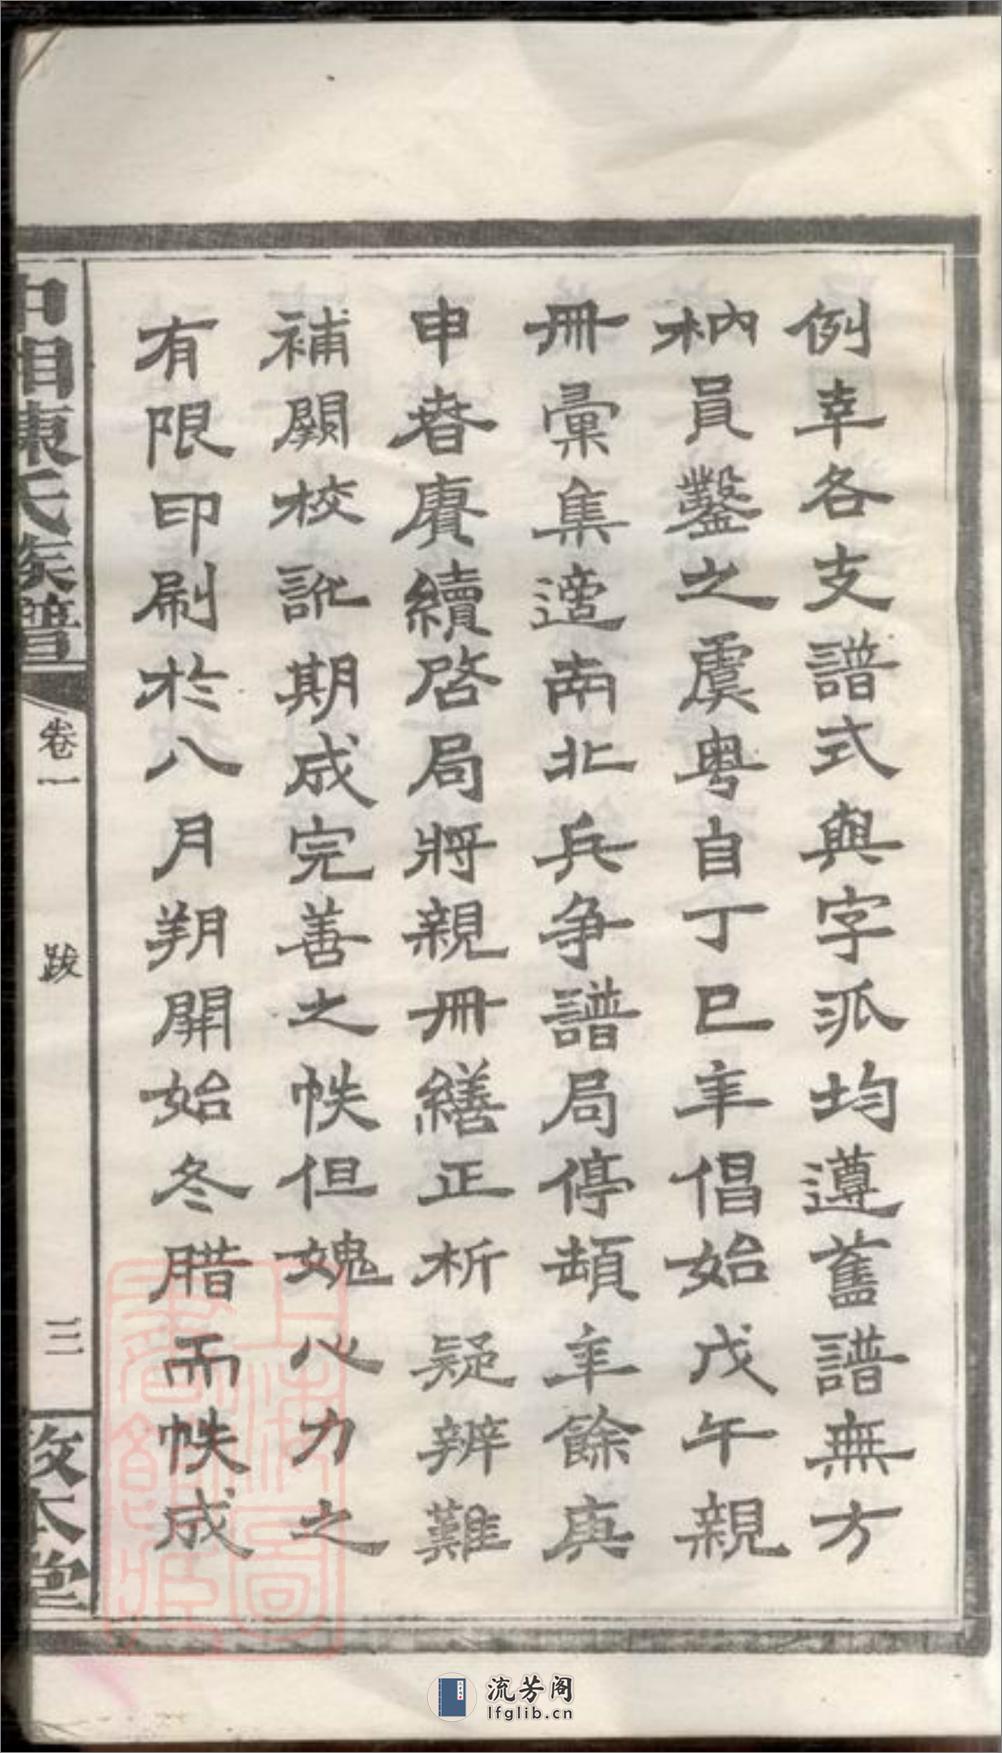 例幸各支譜式與字派均遵舊譜無方
枘員鑿之虞粵自丁巳年倡始戊午親
冊彙集適南北兵爭譜局停頓年餘庚
申春賡續啓局將親冊繕正析疑辨難
補闕校訛期成完善之帙但媿心力之
有限印刷於八月朔開始冬腊而帙成
中湘陳氏族譜
卷一
跋
三
敦本堂
流芳阁
lfglib.cn